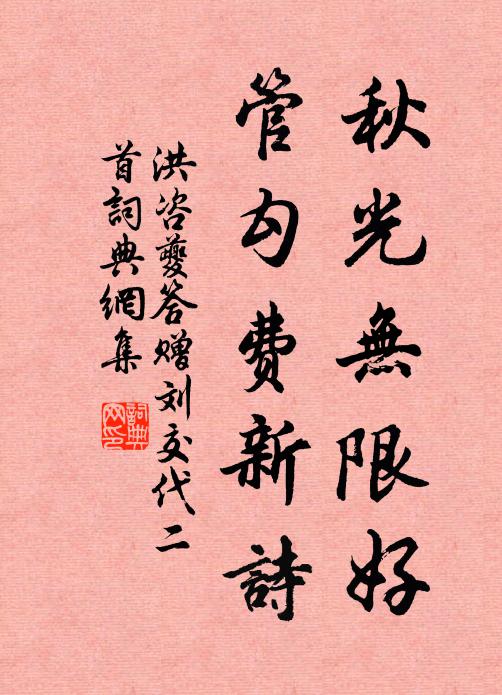 秋光無限好
管勾費新詩
洪咨夔答赠刘交代二
首詞典網集
詞典网印